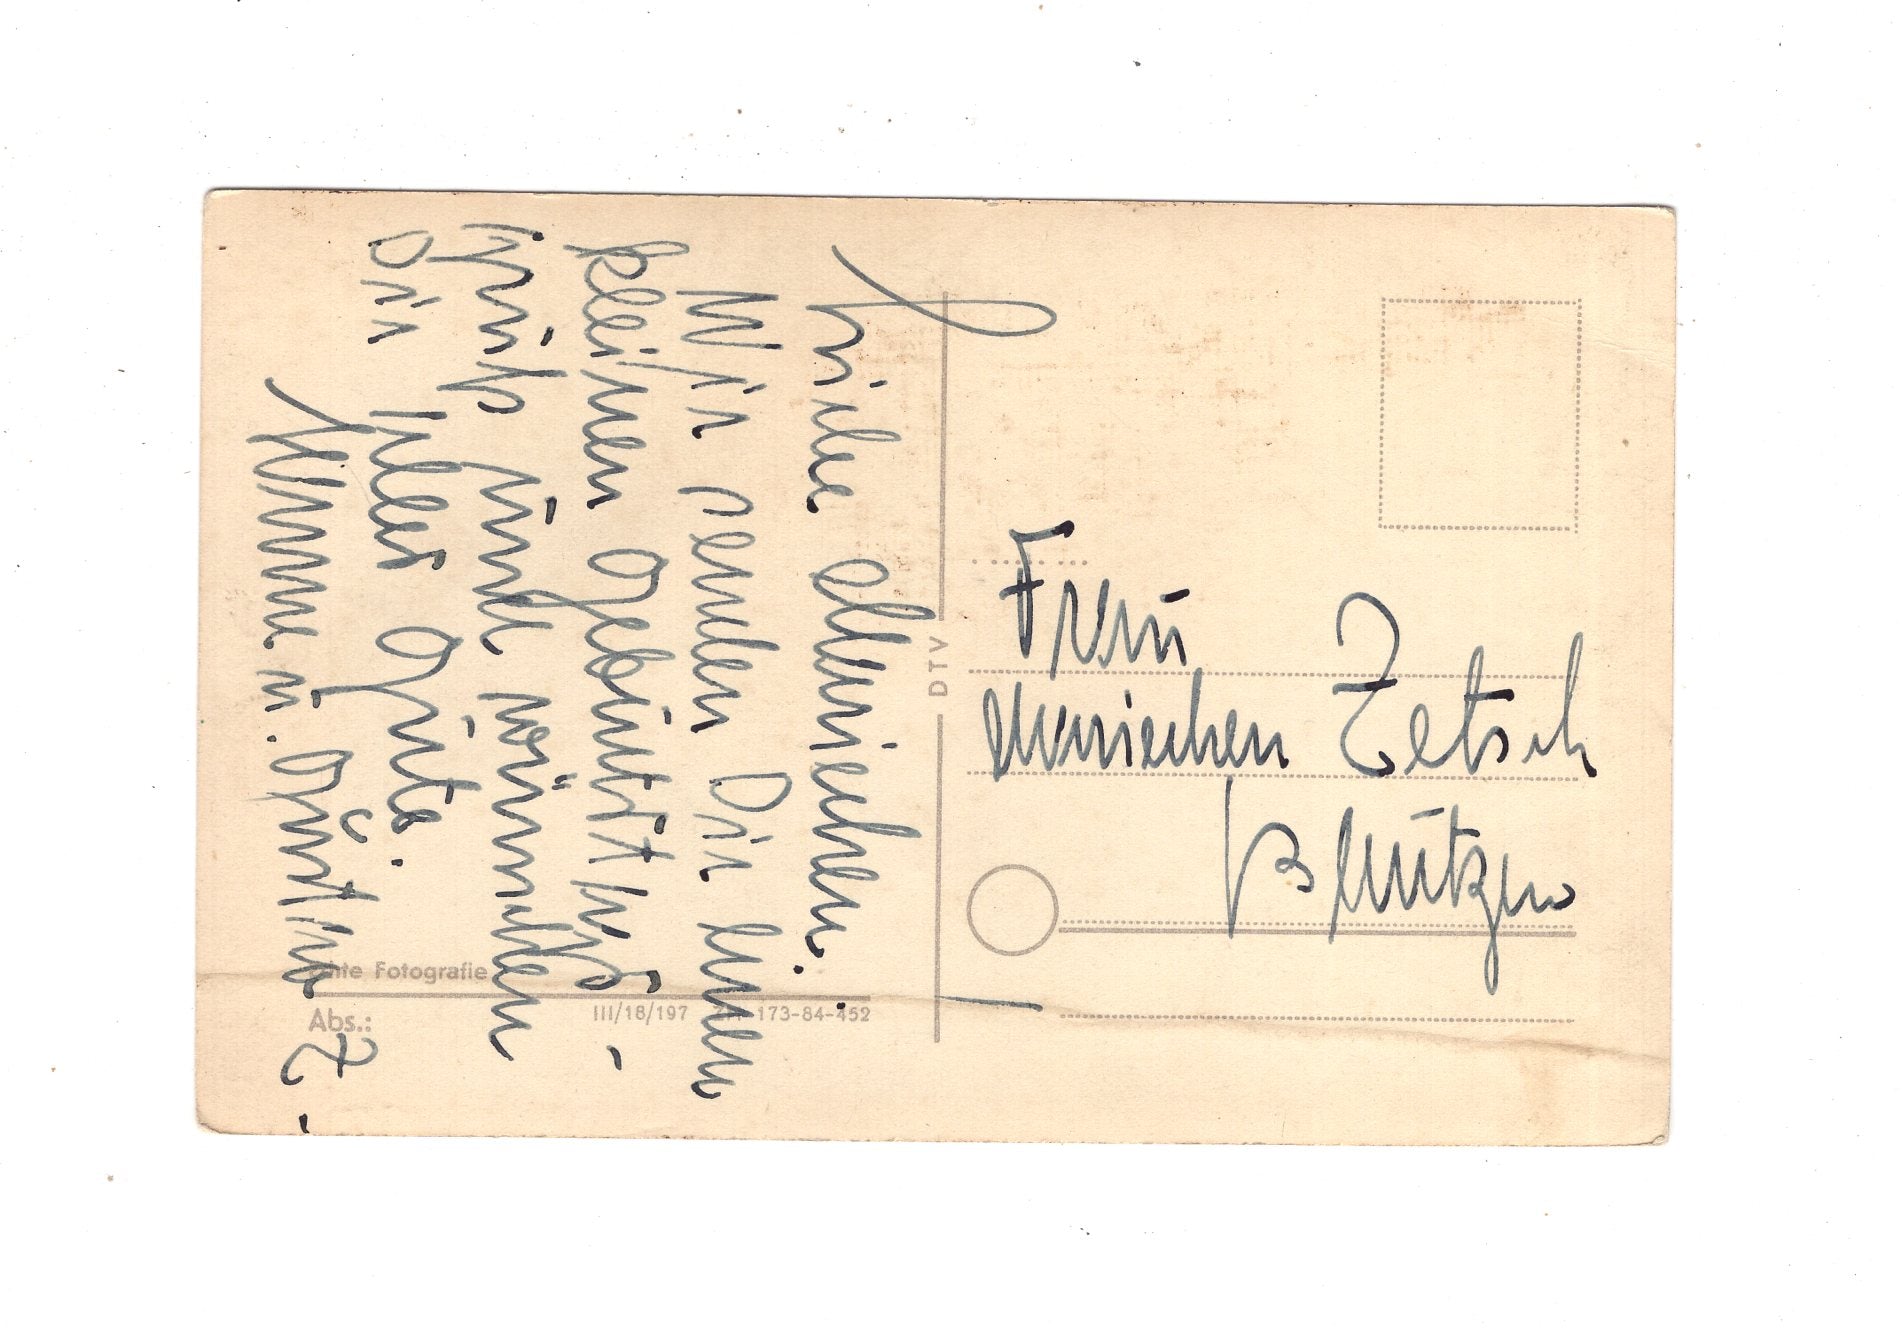 Liebe Mariechen.
Wir senden Dir einen
kleinen Geburtstags-
gruß und wünschen
Dir alles Gute.
u. Günther Z.
Frau
Mariechen Zetsch
DTV
Echte Fotografie
III/18/197 173-84-452
Abs.: